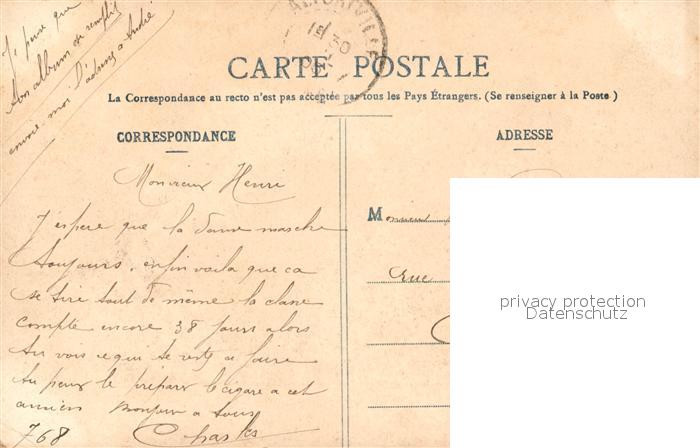 Je pense que
ton album se remplit
envoie moi l'adresse a André
ALFORTVILLE
15
30
CARTE POSTALE
La Correspondance au recto n'est pas acceptée par tous les Pays Étrangers. (Se renseigner à la Poste)
CORRESPONDANCE
ADRESSE
Mon vieux Henri
J'espere que la danse marche
toujours, enfin voila que ca
se tire tout de même la classe
compte encore 38 jours alors
tu vois ce qui te reste a faire
tu peux le préparer le cigare a cet
ancien Bonjour a tous
768 Charles
Monsieur
rue
privacy protection
Datenschutz